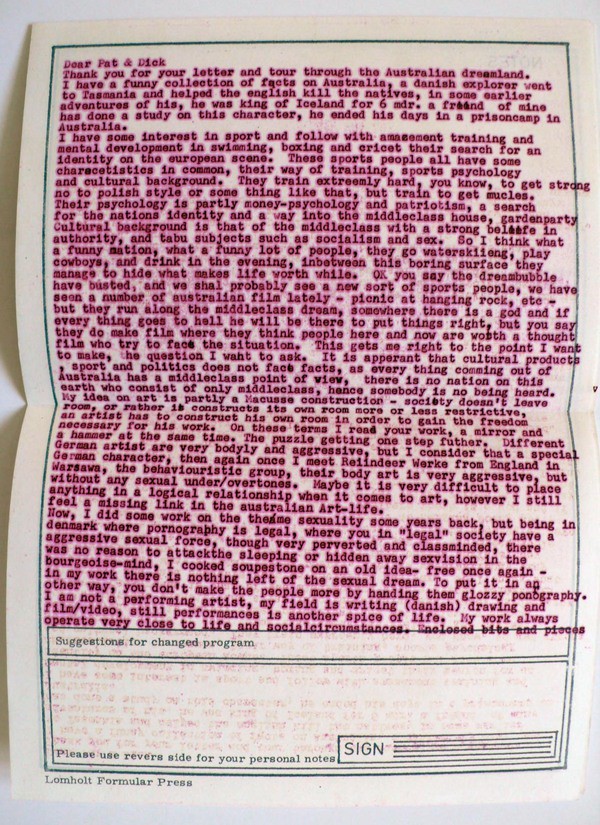 Dear Pat & Dick
Thank you for your letter and tour through the Australian dreamland.
I have a funny collection of facts on Australia, a danish explorer went
to Tasmania and helped the english kill the natives, in some earlier
adventures of his, he was king of Iceland for 6 mdr. a friend of mine
has done a study on this character, he ended his days in a prisoncamp in
Australia.
I have some interest in sport and follow with amasement training and
mental development in swimming, boxing and cricet their search for an
identity on the european scene. These sports people all have some
characetistics in common, their way of training, sports psychology
and cultural background. They train extreemly hard, you know, to get strong
no to polish style or some thing like that, but train to get mucles.
Their psychology is partly money-psychology and patriotism, a search
for the nations identity and a way into the middleclass house, gardenparty
Cultural background is that of the middleclass with a strong beliefe in
authority, and tabu subjects such as socialism and sex. So I think what
a funny nation, what a funny lot of people, they go waterskiieng, play
cowboys, and drink in the evening, inbetween this boring surface they
manage to hide what makes life worth while. OK you say the dreambubble
have busted, and we shal probably see a new sort of sports people, we have
seen a number of australian film lately - picnic at hanging rock, etc -
but they run along the middleclass dream, somewhere there is a god and if
every thing goes to hell he will be there to put things right, but you say
they do make film where they think people here and now are worth a thought
film who try to face the situation. This gets me right to the point I want
to make, the question I want to ask. It is apperant that cultural products
, sport and politics does not face facts, as every thing comming out of
Australia has a middleclass point of view, there is no nation on this
earth who consist of only middleclass, hence somebody is no being heard.
My idea on art is partly a Macusse construction - society doesn't leave
room, or rather is constructs its own room more or less restrictive,
an artist has to construct his own room in order to gain the freedom
necessary for his work. On these terms I read your work, a mirror and
a hammer at the same time. The puzzle getting one step futher. Different
German artist are very bodyly and aggressive, but I consider that a special
German character, then again once I meet Reiindeer Werke from England in
Warsawa, the behaviouristic group, their body art is very aggressive, but
without any sexual under/overtones. Maybe it is very difficult to place
anything in a logical relationship when it comes to art, however I still
feel a missing link in the australian Art-life.
Now, I did some work on the theme sexuality some years back, but being in
denmark where pornography is legal, where you in "legal" society have a
aggressive sexual force, though very perverted and classminded, there
was no reason to attackthe sleeping or hidden away sexvision in the
bourgeoise-mind, I cooked soupestone on an old idea- free once again -
in my work there is nothing left of the sexual dream. To put it in an
other way, you don't make the people more by handing them glozzy ponography.
I am not a performing artist, my field is writing (danish) drawing and
film/video, still performances is another spice of life. My work always
operate very close to life and socialcircumstance. Enclosed bits and pieces
Suggestions for changed program
Please use revers side for your personal notes
SIGN
Lomholt Formular Press